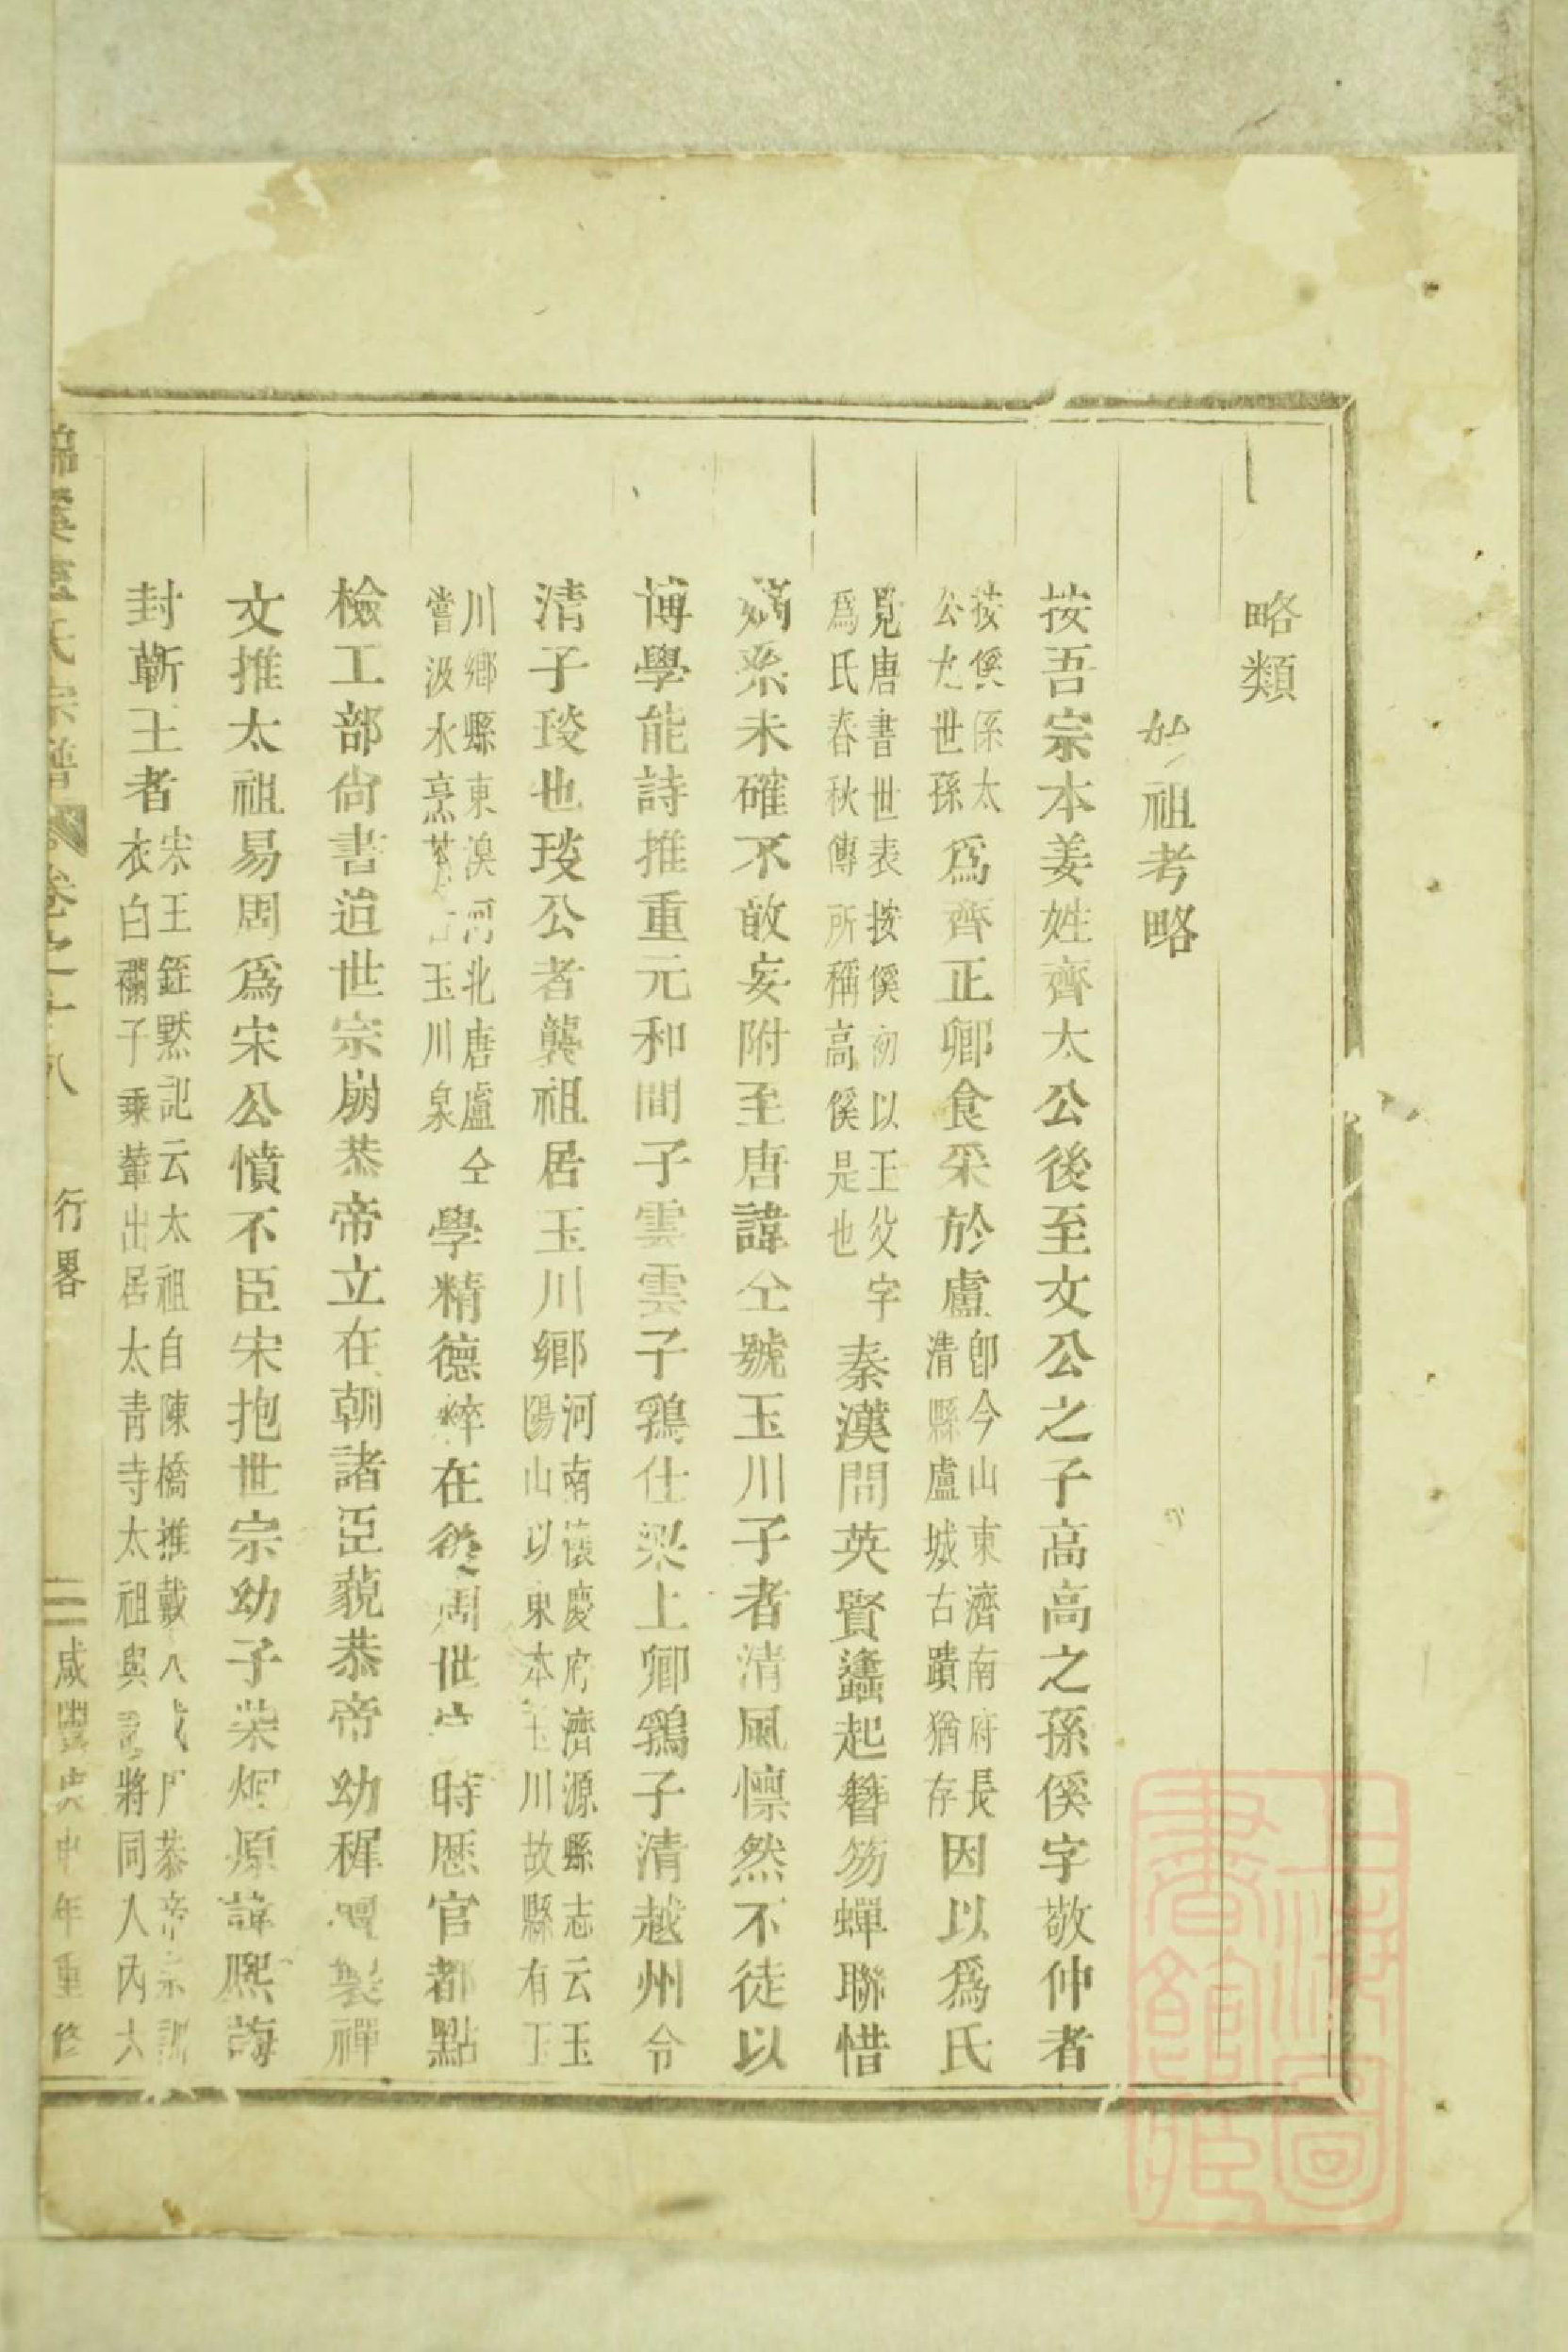 略類
始祖考略
按吾宗本姜姓齊太公後至文公之子高高之孫傒字敬仲者
按傒係太
公九世孫
爲齊正卿食采於盧
卽今山東濟南府長
清縣盧城古蹟猶存
因以爲氏
見唐書世表按傒初以王父字
爲氏春秋傳所稱高傒是也
秦漢間英賢蠭起簪笏蟬聯惜
嫡系未確不敢妄附至唐諱仝號玉川子者清風懍然不徒以
博學能詩推重元和間子雲雲子鶏仕梁上卿鶏子清越州令
清子琰也琰公者襲祖居玉川鄉
河南懷慶府濟源縣志云玉
陽山以東本玉川故縣有玉
川鄉縣東溴河北唐盧仝
嘗汲水烹茶 玉川泉
學精德粹在後周世宗時歷官都點
檢工部尙書迨世宗崩恭帝立在朝諸臣藐恭帝幼穉 製禪
文推太祖易周爲宋公憤不臣宋抱世宗幼子柴烱原諱熙誨
封蘄王者
宋王銍默記云太祖自陳橋推戴入城 恭帝
衣白襴子乘輦出居太青寺太祖與 將同人內大
氏宗譜 卷之十八 行畧 二 咸豐 申年重修
上海圖書館藏